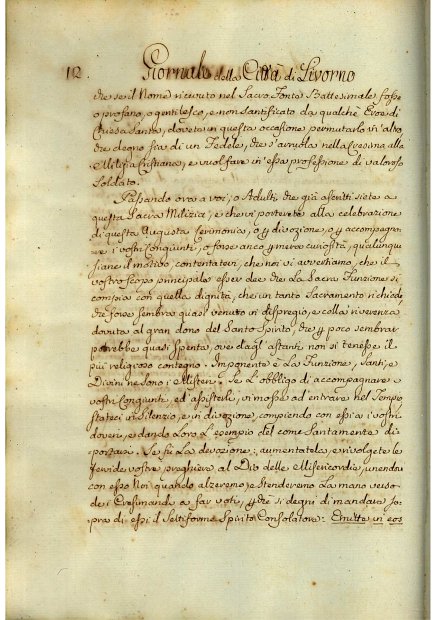 12. Giornale della Città di Livorno
che se il Nome ricevuto nel Sacro Fonte Battesimale fosse
o profano, o gentilesco, e non santificato da qualche Eroe di
Chiesa Santa, dovete in questa occasione permutarlo in altro
che degno sia di un Fedele, che s'arruola nella Cresima alla
Milizia Cristiana, e vuol fare in essa professione di valoroso
Soldato.
Passando ora a voi, o Adulti, che già ascritti siete a
questa Sacra Milizia, e che vi porterete alla celebrazione
di questa Augusta Cerimonia, o p divozione, o p accompagna-
re i vostri Congiunti, o forse anco p mera curiosità, qualunque
siane il motivo, contentatevi, che noi vi avvertiamo, che il
vostro scopo principale esser dee che la Sacra Funzione si
compia con quella dignità, che un tanto Sacramento richiede
che forse sembra quasi venuto in dispregio, e colla riverenza
dovuta al gran dono del Santo Spirito, che p poco sembrar
potrebbe quasi spenta, ove dagl'astanti non si tenesse il
più religioso contegno. Imponente è la Funzione, Santi, e
Divini ne sono i Misteri. Se l'obbligo di accompagnare i
vostri Congiunti, ed assisterli, vi mosse ad entrare nel Tempio
stateci in silenzio, e in divozione, compiendo con essi a i vostri
doveri, e dando loro l'esempio del come Santamente di-
portarsi. Se fù la devozione; aumentatela, e rivolgete le
fervide vostre preghiere al Dio delle Misericordie, unendovi
con esso Noi quando alzeremo, e stenderemo la mano verso
de i Cresimandi a far voti, p chè si degni di mandare so-
pra di essi il Settiforme Spirito Consolatore: Emitte in eos